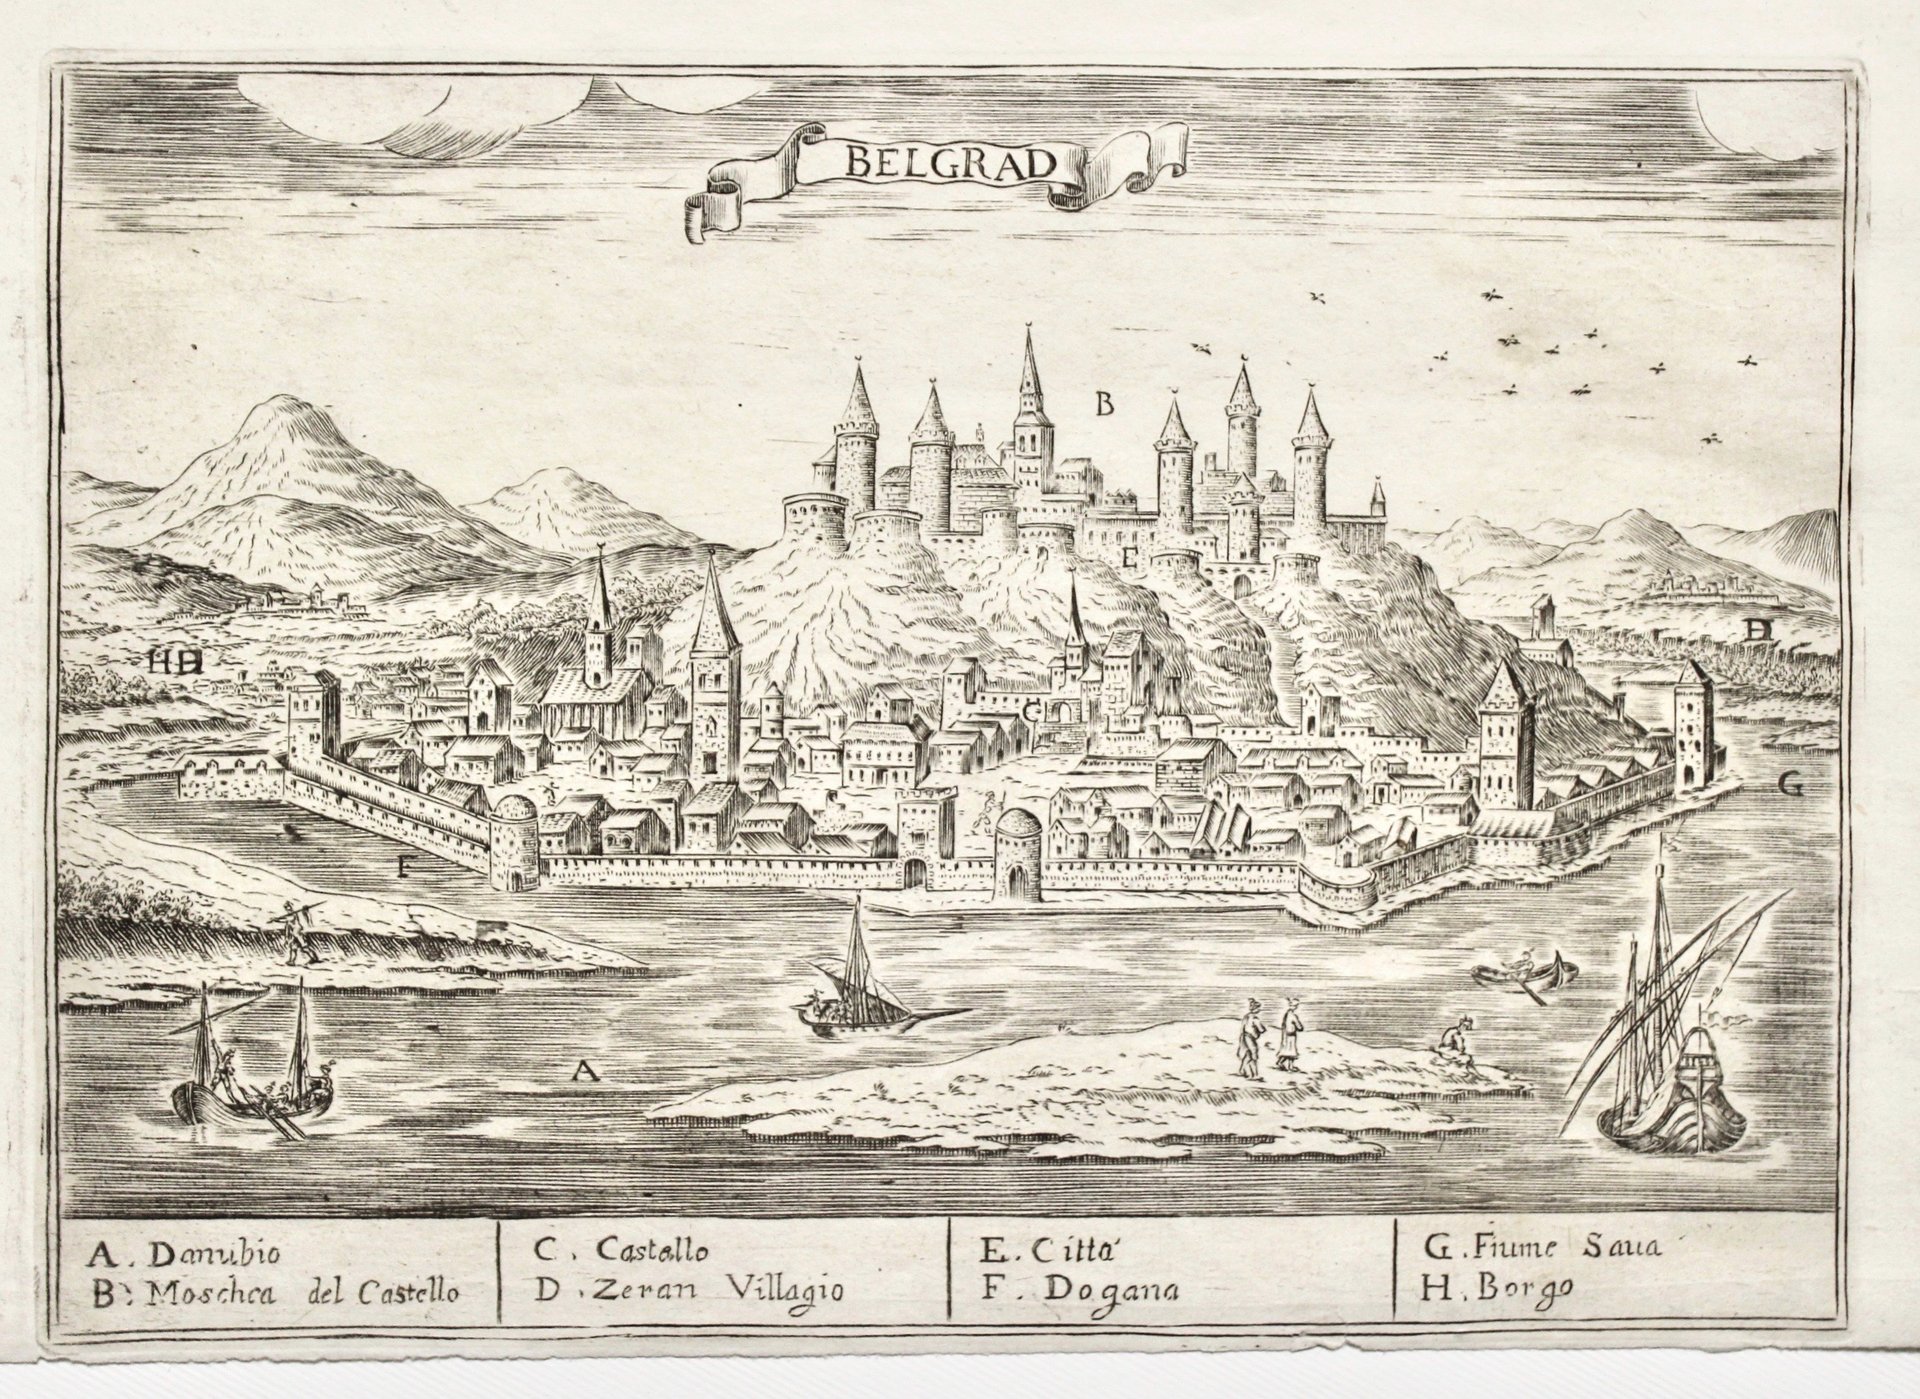 BELGRAD
B
E
H D
D
C
G
F
A
A. Danubio
B: Moschea del Castello
C. Castello
D. Zeran Villagio
E. Citta'
F. Dogana
G. Fiume Saua
H. Borgo